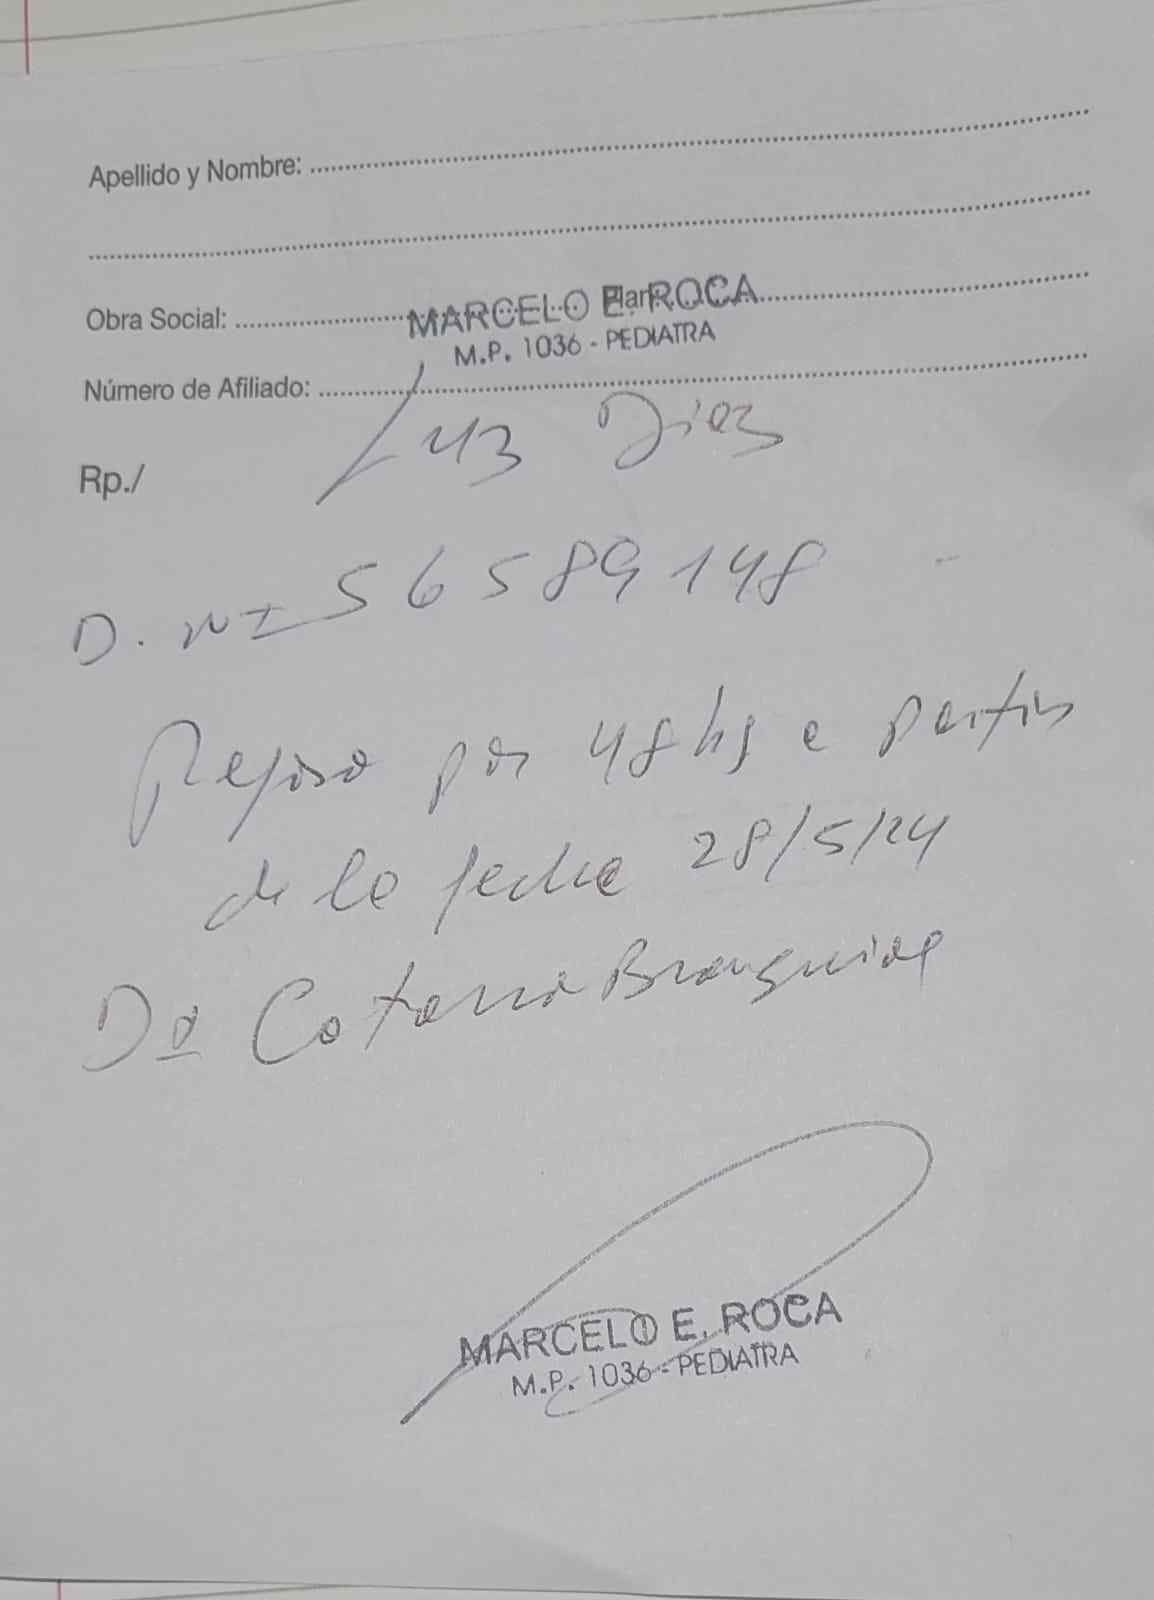 Apellido y Nombre:
Obra Social: Plan:
MARCELO E. ROCA
M.P. 1036 - PEDIATRA
Número de Afiliado:
Luz Diez
Rp./
D.NI 56589148
Reposo por 48 hs a partir
de la fecha 28/5/24
Dª Catarro Bronquial
MARCELO E. ROCA
M.P. 1036 - PEDIATRA